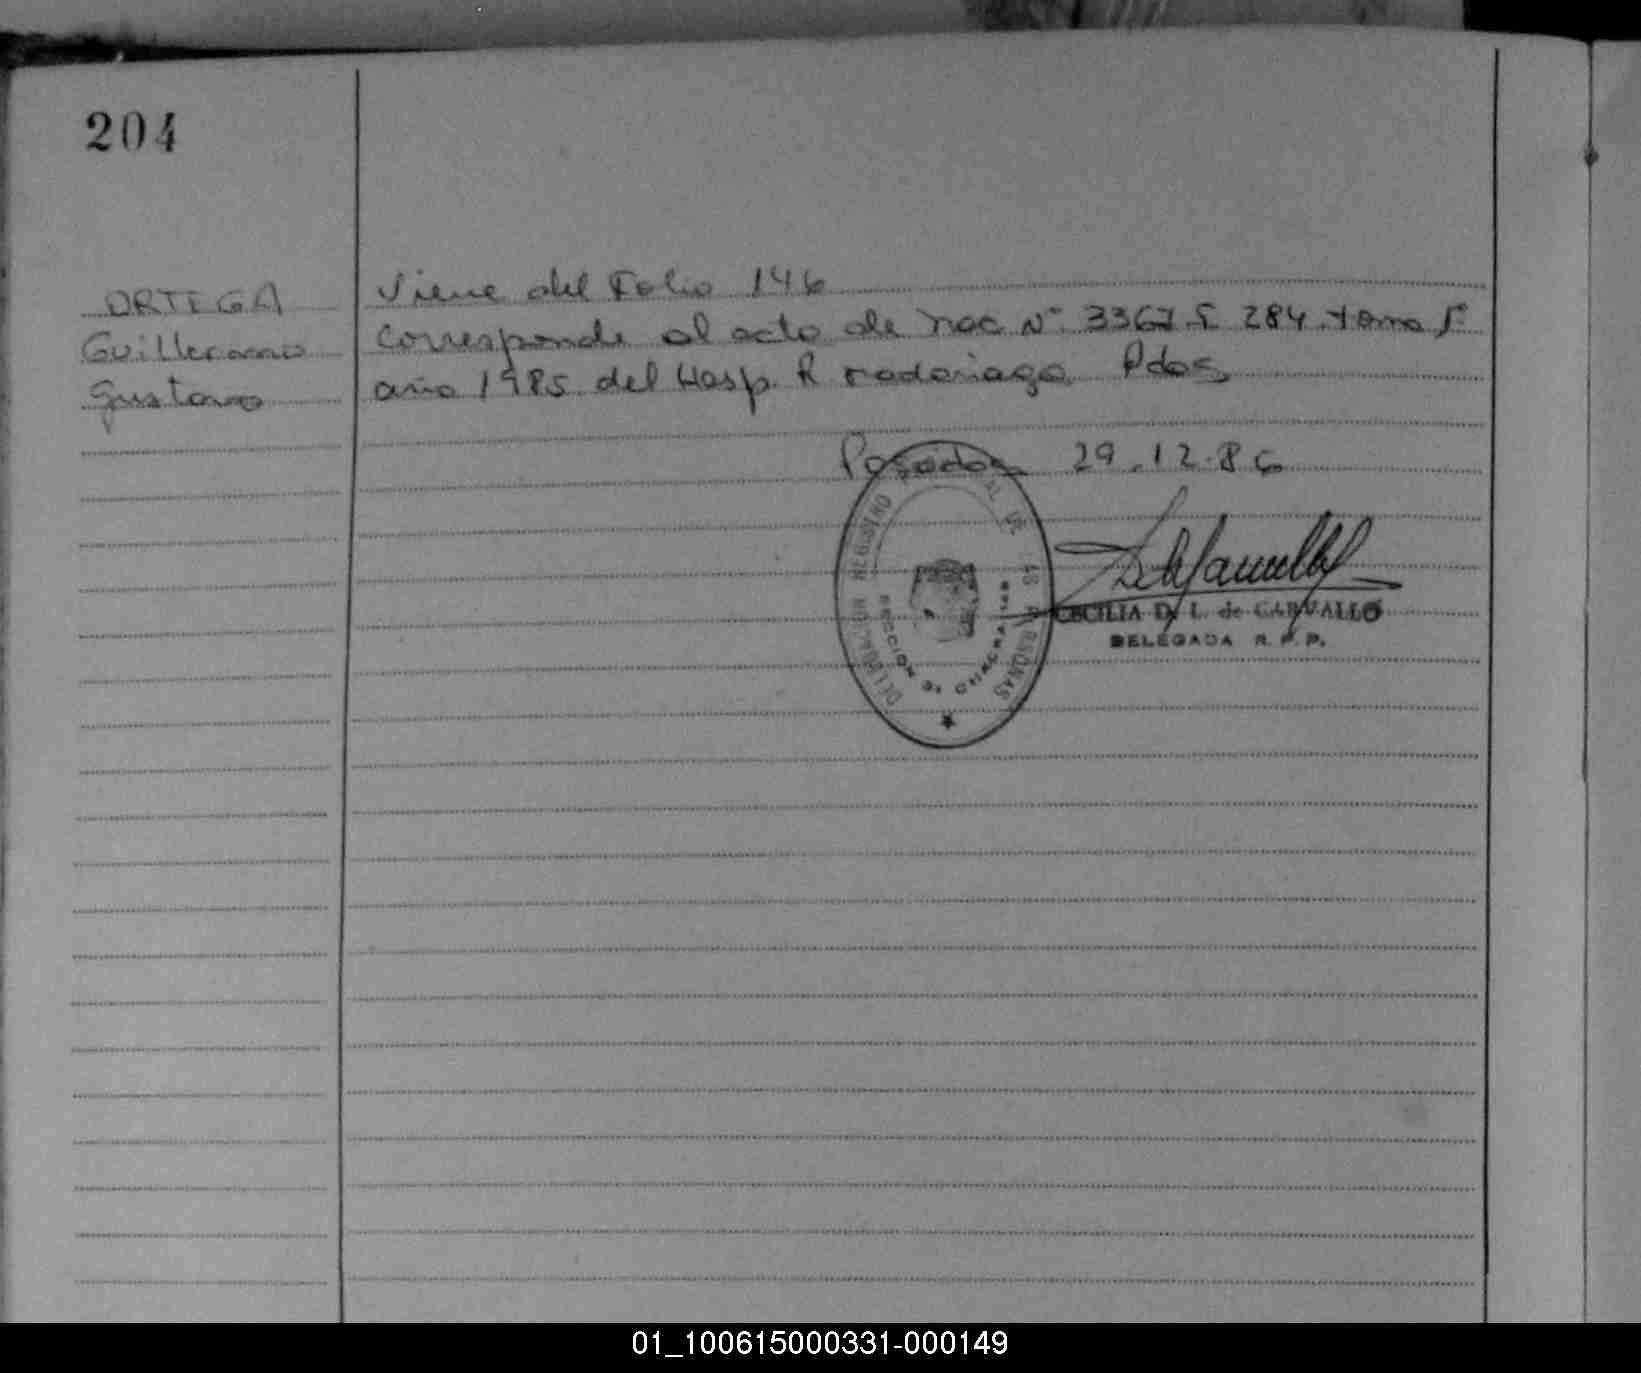 204
ORTEGA
Guillermo
Gustavo
Viene del Folio 146
Corresponde al acta de nac Nº 3367 F 284 tomo
año 1985 del Hosp. R madariaga Pdas
Posadas 29.12.86
DELEGACION REGISTRO PROVINCIAL DE LAS PERSONAS
CECILIA D. L. de CARVALLO
DELEGADA R. P. P.
01_100615000331-000149